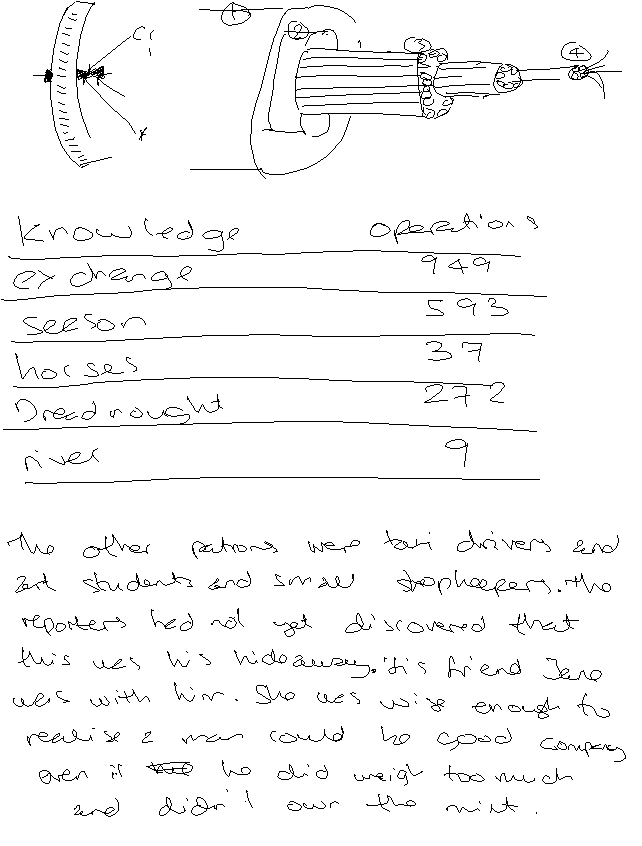 Cr
x
1
2
1
3
4
knowledge operations
exchange 949
seeson 593
horses 37
Dreadnought 272
river 9
The other patrons were taxi drivers and
art students and small shopkeepers. The
reporters had not yet discovered that
this was his hideaway. His friend Jane
was with him. She was wise enough to
realise a man could be good company
even if he did weigh too much
and didn't own the mint.